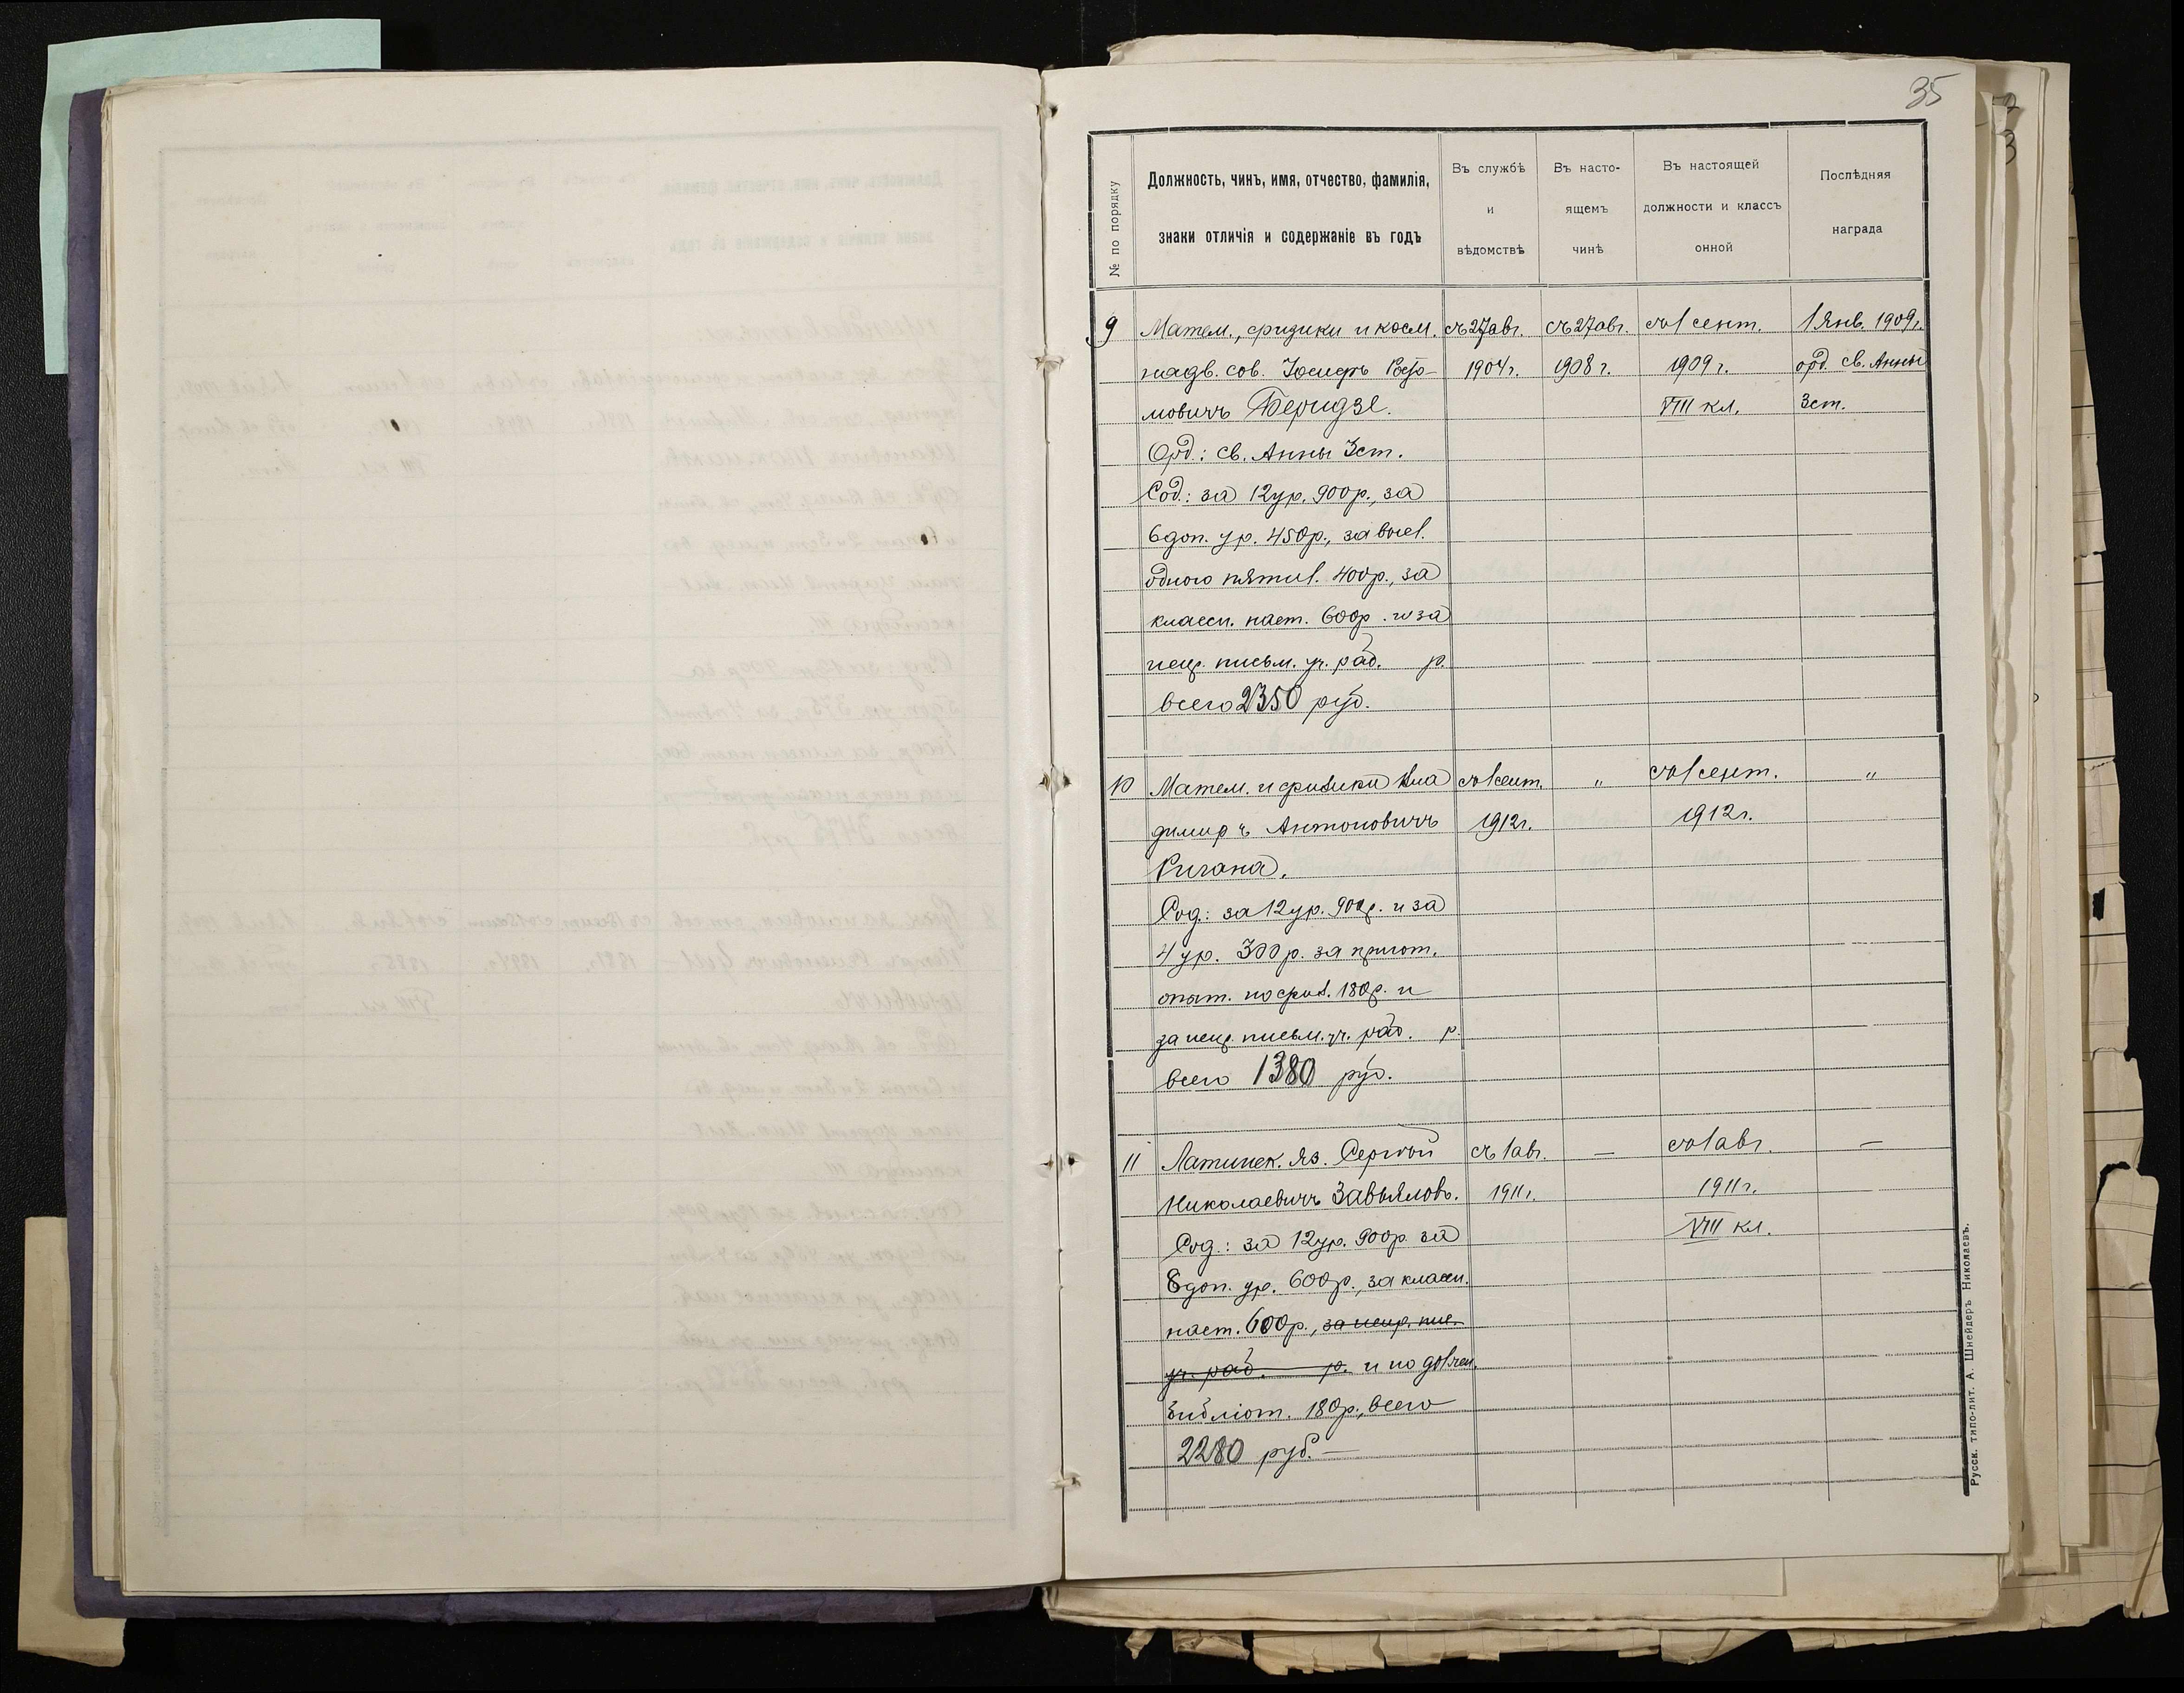 35
№ по порядку
Должность, чинъ, имя, отчество, фамилія,
знаки отличія и содержаніе въ годъ
Въ службѣ
и
вѣдомствѣ
Въ насто-
ящемъ
чинѣ
Въ настоящей
должности и классъ
онной
Послѣдняя
награда
9 Матем., физики и косм. съ 27 авг. съ 27 авг. съ 1 сент. 1 Янв. 1909г.
надв. сов. Іосифъ 1904г. 1908 г. 1909 г. орд. св. Анны
мовичъ Беридзе. VIII кл. 3 ст.
Орд.: св. Анны 3 ст.
Сод.: за 12 ур. 900р., за
6 доп. ур. 450р., за высл.
одного пятил. 400р., за
классн. наст. 600р. и за
испр. письм. уч. раб. р.
всего 2350 руб.
10 Матем. и физики Вла съ 1 сент. " съ 1 сент. "
димиръ Антоновичъ 1912г. 1912г.
Ричана.
Сод.: за 12 ур. 900р. и за
4 ур. 300 р. за пригот.
опыт. по физ. 180р. и
за испр. письм. уч. раб. р.
всего 1380 руб.
11 Латинск. яз. Сергѣй съ 1 авг. — съ 1 авг. —
Николаевичъ Завьяловъ. 1911г. 1911г.
Сод.: за 12 ур. 900р. за VIII кл.
8 доп. ур. 600р., за классн.
наст. 600р., за испр. пис.
уч. раб. р. и по должн.
библіот. 180р., всего
2280 руб. —
Русск. типо-лит. А. Шнейдеръ Николаевъ.